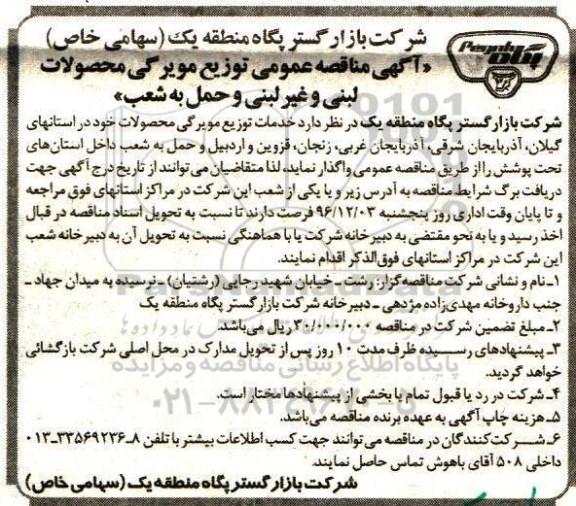 شرکت بازارگستر پگاه منطقه یک (سهامی خاص)
«آگهی مناقصه عمومی توزیع مویرگی محصولات
لبنی و غیر لبنی و حمل به شعب»
پگاه
شرکت بازارگستر پگاه منطقه یک در نظر دارد خدمات توزیع مویرگی محصولات خود در استانهای
گیلان، آذربایجان شرقی، آذربایجان غربی، زنجان، قزوین و اردبیل و حمل به شعب داخل استان‌های
تحت پوشش را از طریق مناقصه عمومی واگذار نماید، لذا متقاضیان می‌توانند از تاریخ درج آگهی جهت
دریافت برگ شرایط مناقصه به آدرس زیر و یا یکی از شعب این شرکت در مراکز استانهای فوق مراجعه
و تا پایان وقت اداری روز پنجشنبه ۹۶/۱۲/۰۳ فرصت دارند تا نسبت به تحویل اسناد مناقصه در قبال
اخذ رسید و یا به نحو مقتضی به دبیرخانه شرکت یا با هماهنگی نسبت به تحویل آن به دبیرخانه شعب
این شرکت در مراکز استانهای فوق‌الذکر اقدام نمایند.
۱ـ نام و نشانی شرکت مناقصه‌گزار: رشت ـ خیابان شهید رجایی (رشتیان) ـ نرسیده به میدان جهاد ـ
جنب داروخانه مهدی‌زاده مژدهی ـ دبیرخانه شرکت بازارگستر پگاه منطقه یک
۲ـ مبلغ تضمین شرکت در مناقصه ۳۰/۰۰۰/۰۰۰ ریال می‌باشد.
۳ـ پیشنهادهای رسیده ظرف مدت ۱۰ روز پس از تحویل مدارک در محل اصلی شرکت بازگشائی
خواهد گردید.
۴ـ شرکت در رد یا قبول تمام یا بخشی از پیشنهادها مختار است.
۵ـ هزینه چاپ آگهی به عهده برنده مناقصه می‌باشد.
۶ـ شرکت‌کنندگان در مناقصه می‌توانند جهت کسب اطلاعات بیشتر با تلفن ۸ـ۳۳۵۶۹۲۳۶ـ۰۱۳
داخلی ۵۰۸ آقای باهوش تماس حاصل نمایند.
شرکت بازارگستر پگاه منطقه یک (سهامی خاص)